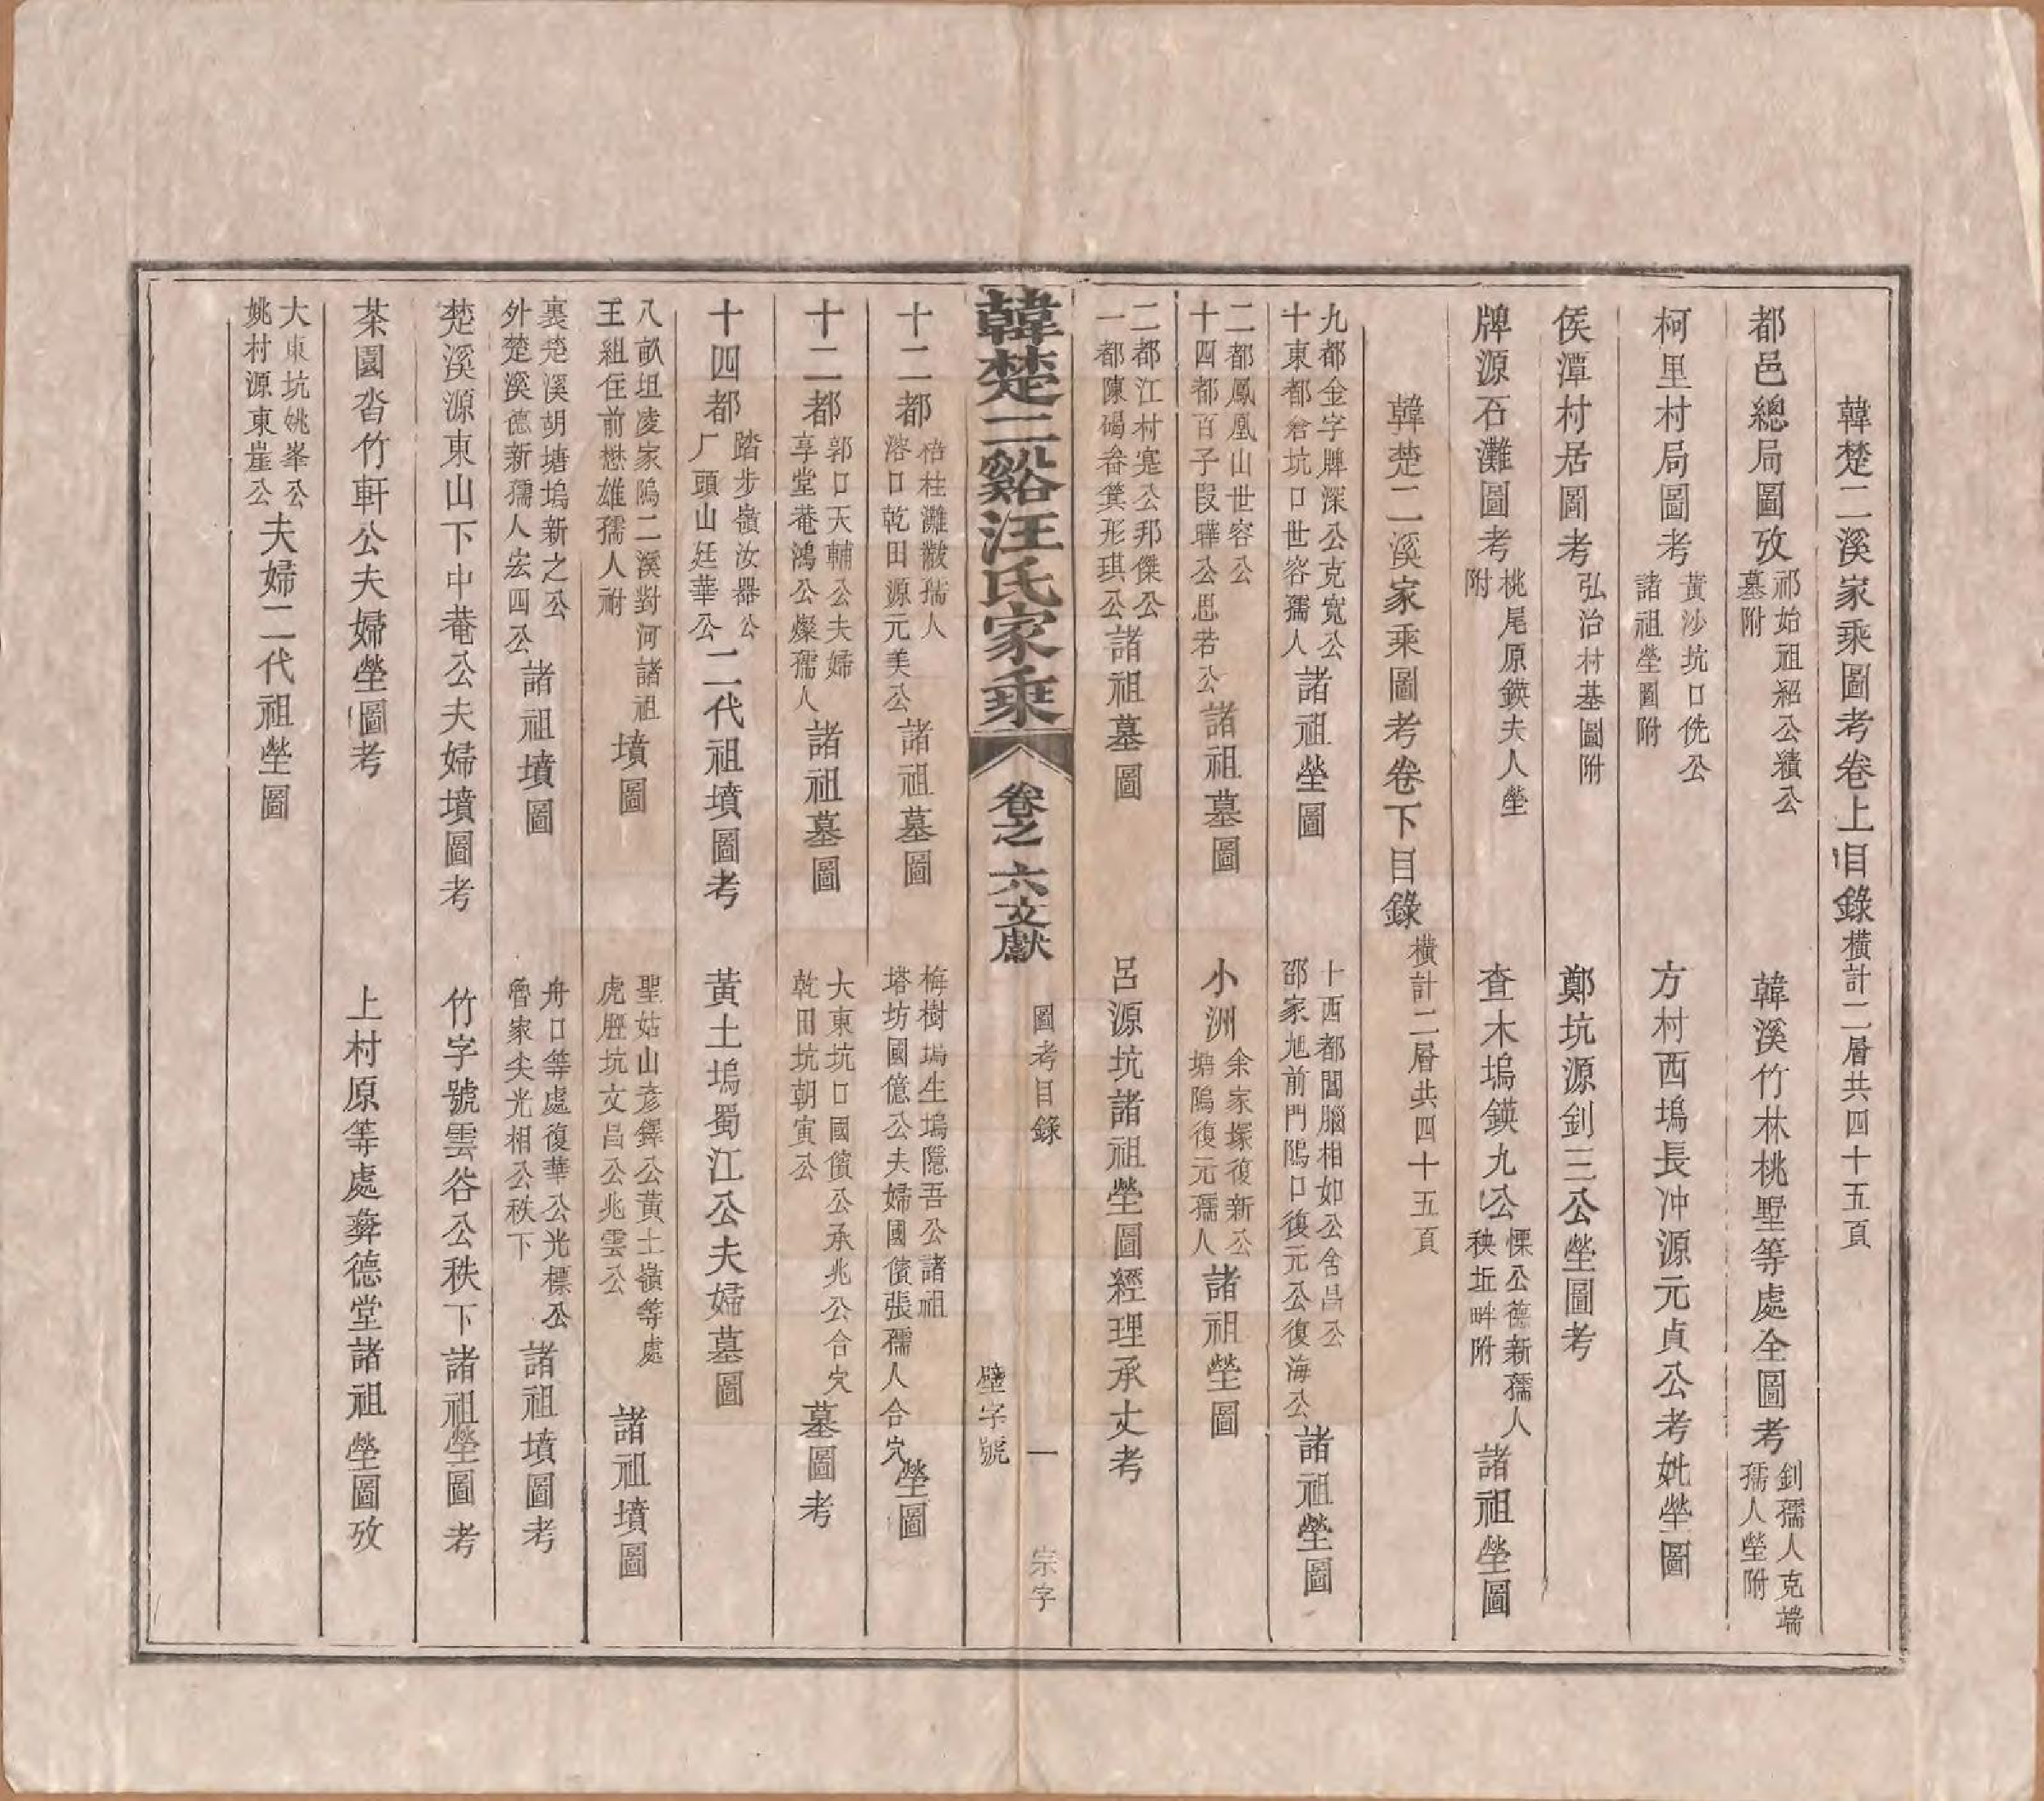 韓楚二溪家乘圖考卷上目錄橫計二層共四十五頁
都邑總局圖攷祁始祖紹公積公墓附
韓溪竹林桃墅等處全圖考釗孺人克端孺人塋附
柯里村局圖考黃沙坑口侁公諸祖塋圖附
方村西塢長冲源元貞公考妣塋圖
侯潭村居圖考弘治村基圖附
鄭坑源釗三公塋圖考
牌源石灘圖考桃尾原鍈夫人塋附
查木塢鍈九公慄公德新孺人秧坵畔附諸祖塋圖
韓楚二溪家乘圖考卷下目錄橫計二層共四十五頁
九都金字牌深公克寬公十東都倉坑口世容孺人諸祖塋圖
十西都閶腦相如公舍昌公邵家旭前門隖口復元公復海公諸祖塋圖
二都鳳凰山世容公十四都百子段曄公思若公諸祖墓圖
小洲余家塚復新公塘隖復元孺人諸祖塋圖
二都江村寔公邦傑公一都陳碣畚箕形琪公諸祖墓圖
呂源坑諸祖塋圖經理承丈考
韓楚二谿汪氏家乘
卷之六文獻
圖考目錄 一 宗字
壁字號
十二都梏柱灘黻孺人溶口乾田源元美公諸祖墓圖
梅樹塢生塢隱吾公諸祖塔坊國億公夫婦國儐張孺人合穴塋圖
十二都郭口天輔公夫婦享堂菴鴻公燦孺人諸祖墓圖
大東坑口國儐公承兆公合穴乾田坑朝寅公墓圖考
十四都踏步嶺汝器公厂頭山廷華公二代祖墳圖考
黃土塢蜀江公夫婦墓圖
八畝坦凌家隖二溪對河諸祖王組住前懋雄孺人祔墳圖
聖姑山彥鐸公黃土嶺等處虎壓坑文昌公兆雲公諸祖墳圖
裏楚溪胡塘塢新之公外楚溪德新孺人宏四公諸祖墳圖
舟口等處復華公光標公魯家尖光相公秩下諸祖墳圖考
楚溪源東山下中菴公夫婦墳圖考
竹字號雲谷公秩下諸祖塋圖考
茶園沓竹軒公夫婦塋圖考
上村原等處彝德堂諸祖塋圖攷
大東坑姚峯公姚村源東崖公夫婦二代祖塋圖